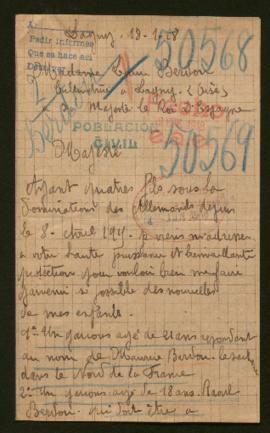 Lagny. 13-1-18
50568
Pedir informes
que se hace así
Madame
Lagny (Oise)
Sa Majesté le Roi d'Espagne
POBLACION
CIVIL
50569
Majesté
Ayant quatres fils sous la
Dominations des Allemands depuis
le 8 Avril 1917. Je viens m'adresser
a votre haute puissance et bienveillante
protections pour vouloir bien me faire
parvenir si possible des nouvelles
de mes enfants.
1º Un garçons agé de 21 ans repondant
au nom de Maurice Berdon. le seul
dans le Nord de la France
2º Un garçons agé de 18 ans. Raoul
Berdon. qui doit être a